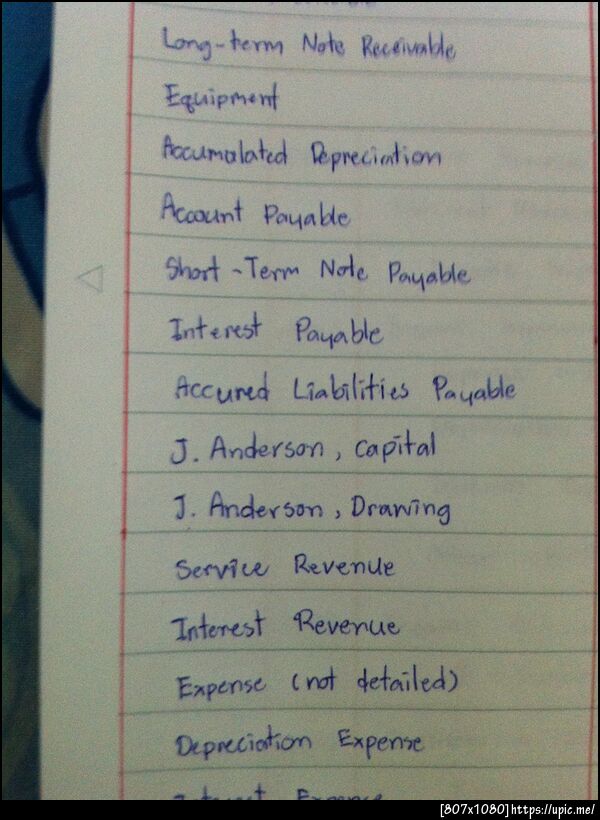 Long-term Note Receivable
Equipment
Accumalated Depreciation
Account Payable
Short-Term Note Payable
Interest Payable
Accured Liabilities Payable
J. Anderson, Capital
J. Anderson, Drawing
Service Revenue
Interest Revenue
Expense (not detailed)
Depreciation Expense
Interest Expense
[807x1080]https://upic.me/